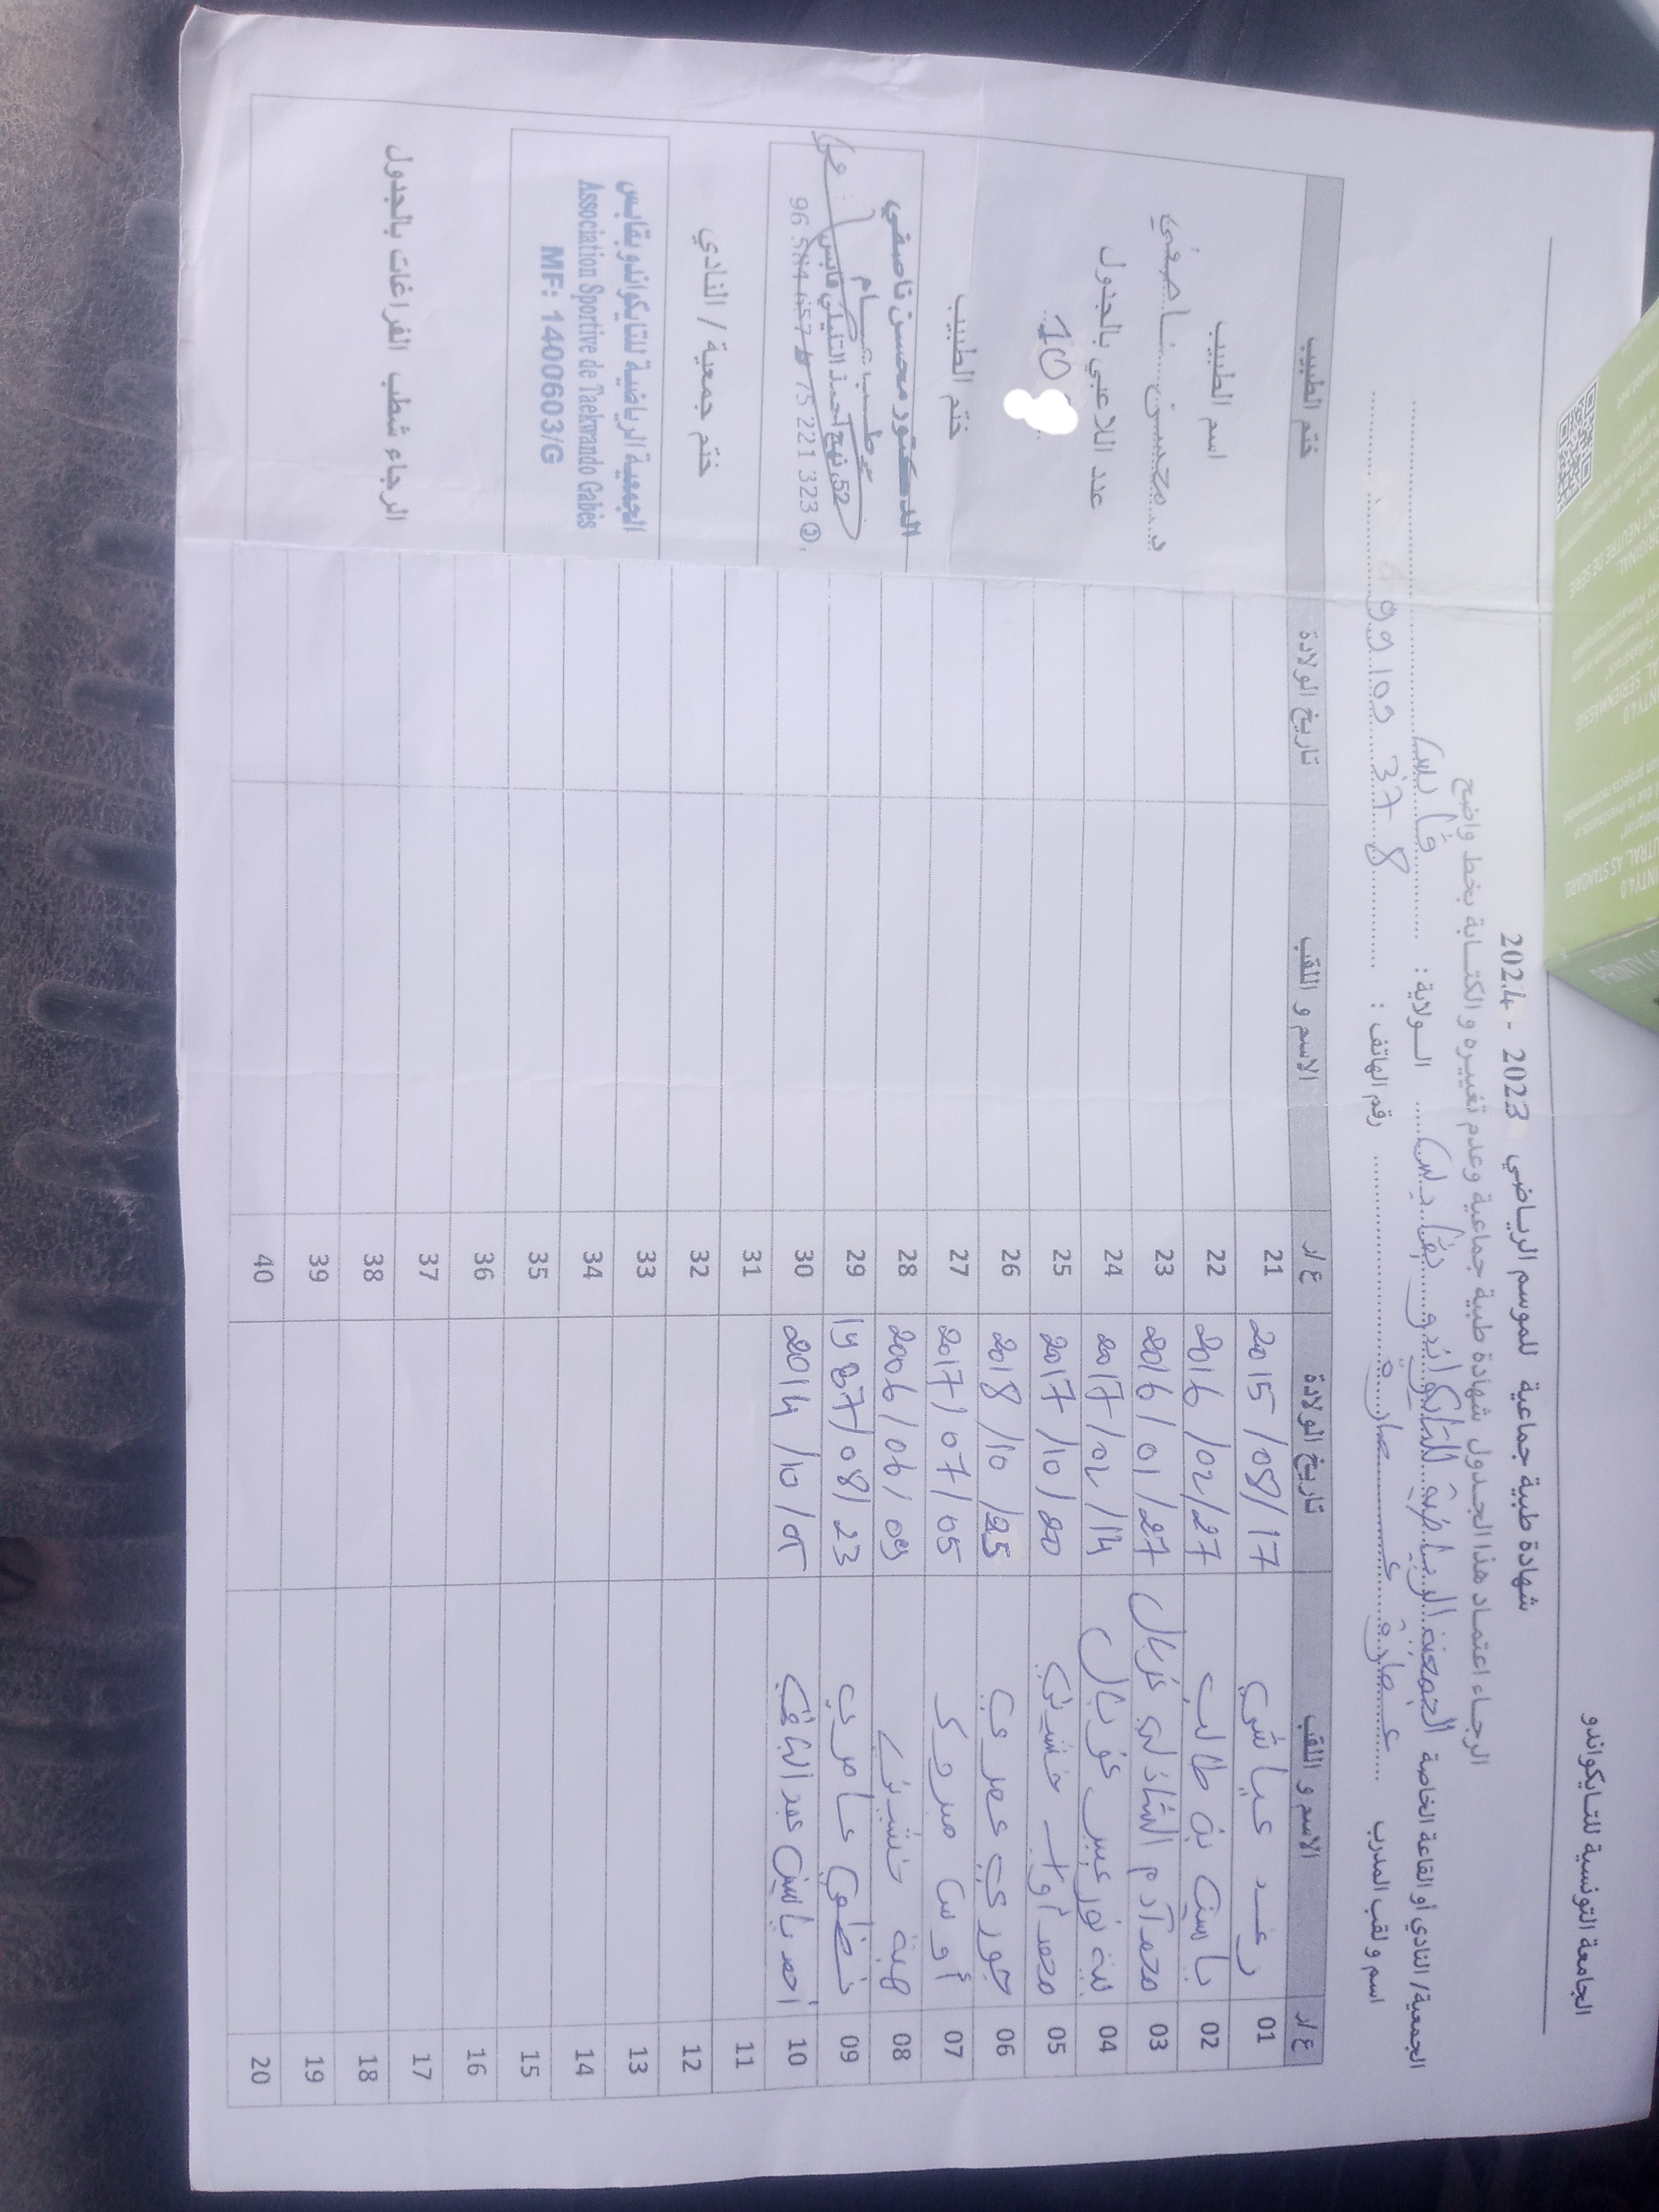 الجامعة التونسية للتايكواندو
شهادة طبية جماعية للموسم الرياضي 2023 - 2024
الرجاء اعتماد هذا الجدول شهادة طبية جماعية وعدم تغييره و الكتابة بخط واضح
الجمعية/ النادي أو القاعة الخاصة الجمعية الرياضية للتايكواندو بقابس الولاية : قابس
اسم و لقب المدرب رقم الهاتف : 99 109 378
ع/ر الاسم و اللقب تاريخ الولادة ع/ر الاسم و اللقب تاريخ الولادة ختم الطبيب
01 رغد عياشي 2015/08/17 21
02 ياسين بن طالب 2016/02/27 22
03 محمد آدم الشاذلي غربال 2016/01/27 23
04 غربال 2017/02/14 24
05 محمد أواب خشيني 2017/10/20 25
06 جوري عمري 2018/10/25 26
07 أوس مبروك 2017/07/05 27
08 هبة 2006/06/09 28
09 عامري 1987/08/23 29
10 أحمد ياسين عبد الباقي 2014/10/05 30
11 31
12 32
13 33
14 34
15 35
16 36
17 37
18 38
19 39
20 40
اسم الطبيب
د. محسن ناصفي
عدد اللاعبي بالجدول
10
ختم الطبيب
الدكتور محسن ناصفي
طب عام
52، نهج أحمد التليلي قابس
75 221 323
ختم جمعية / النادي
الجمعية الرياضية للتايكواندو بقابس
Association Sportive de Taekwando Gabès
MF: 1400603/G
الرجاء شطب الفراغات بالجدول
PRINTY